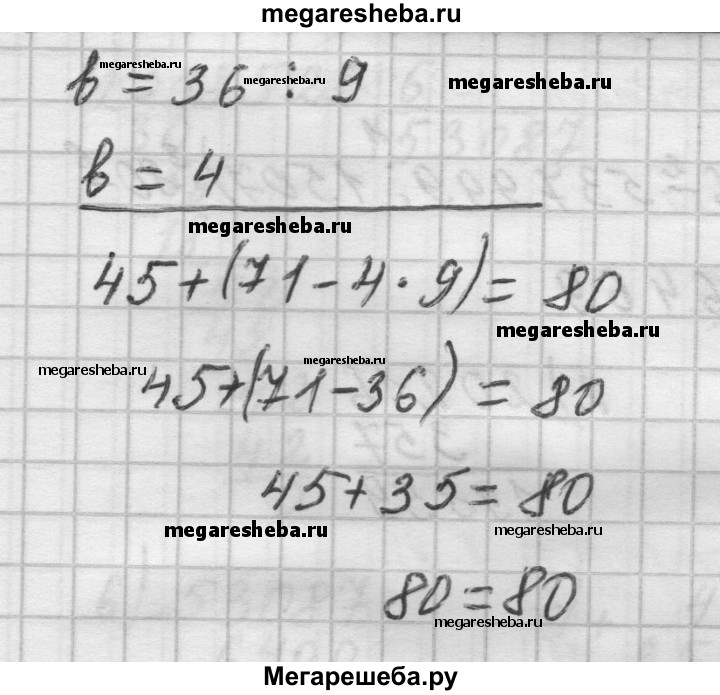 megaresheba.ru
megaresheba.ru megaresheba.ru megaresheba.ru
в = 36 : 9
в = 4
megaresheba.ru
45+(71-4·9)= 80
megaresheba.ru
megaresheba.ru megaresheba.ru
45+(71-36) = 80
45+35=80
megaresheba.ru megaresheba.ru
80=80
megaresheba.ru
Мегарешеба.ру